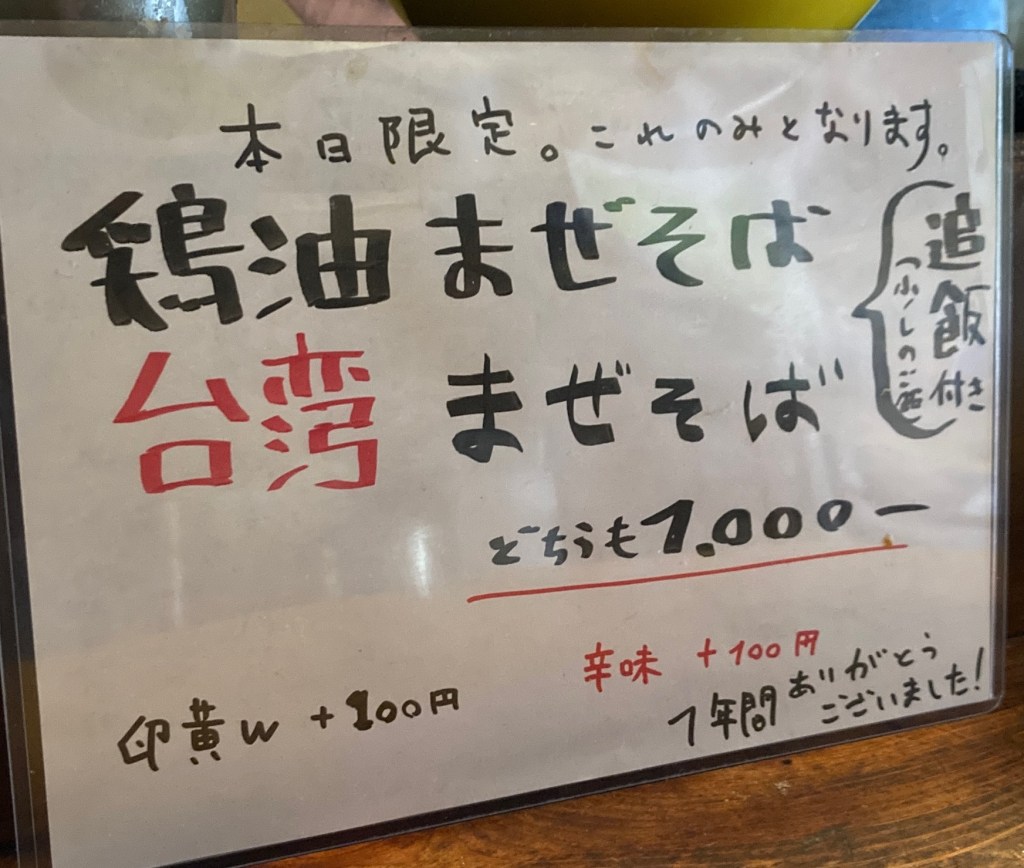 本日限定。これのみとなります。
鶏油まぜそば
台湾まぜそば
追飯付き
(少しのご飯)
どちらも1.000ー
辛味 +100円
卵黄W +100円
1年間ありがとう
ございました!